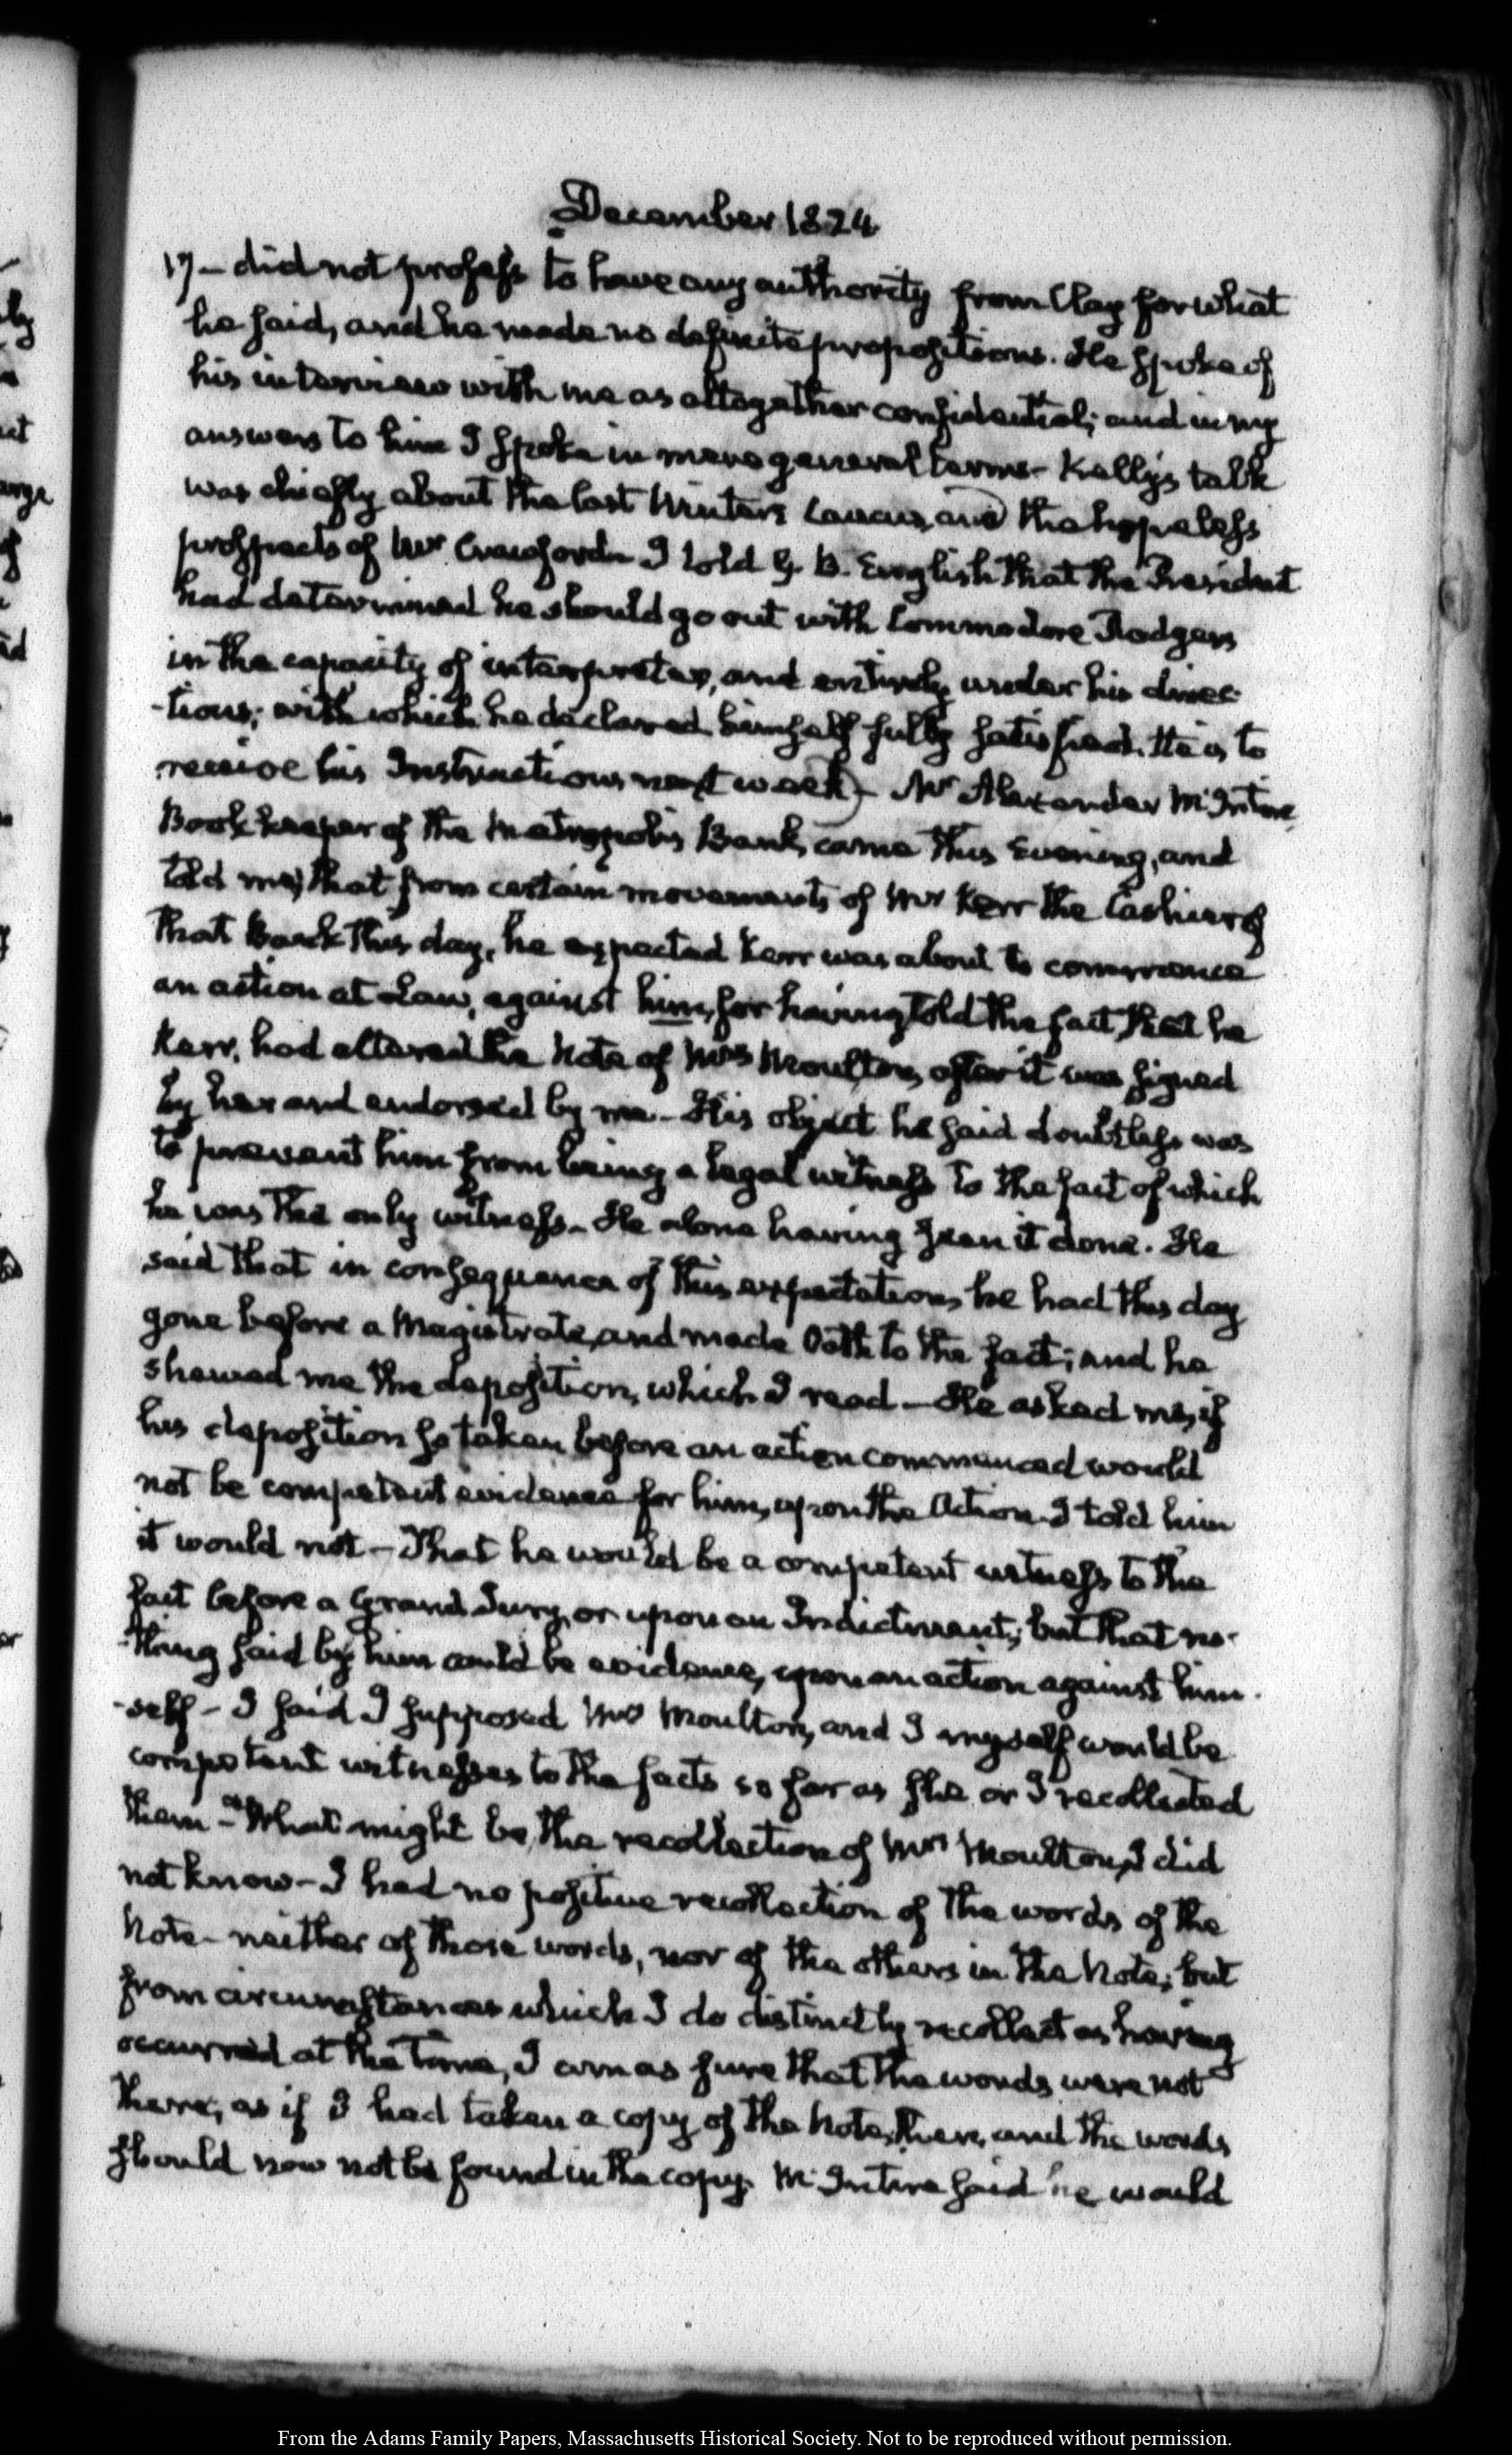 December 1824
17 — did not profess to have any authority from Clay for what
he said, and he made no definite propositions. He spoke of
his interview with me as altogether confidential; and in my
answers to him I spoke in mere general terms — Kelly's talk
was chiefly about the last Winter's Caucus, and the hopeless
prospects of Mr. Crawford. I told G. B. English that the President
had determined he should go out with Commodore Rodgers
in the capacity of interpreter, and entirely under his direc-
-tions; with which he declared himself fully satisfied. He is to
receive his Instructions next week) — Mr. Alexander McIntire,
Book keeper of the Metropolis Bank, came this Evening, and
told me, that from certain movements of Mr. Kerr the Cashier of
that Bank this day, he expected Kerr was about to commence
an action at Law, against him, for having told the fact, that he
Kerr, had altered the Note of Mrs Moulton, after it was signed
by her and endorsed by me — His object he said doubtless was
to prevent him from being a legal witness to the fact of which
he was the only witness — He alone having seen it done. He
said that in consequence of this expectation, he had this day
gone before a Magistrate, and made Oath to the fact; and he
shewed me the deposition, which I read — He asked me, if
his deposition so taken before an action commenced would
not be competent evidence for him, upon the Action. I told him
it would not — That he would be a competent witness to the
fact before a Grand Jury, or upon an Indictment; but that no-
-thing said by him could be evidence, upon an action against him-
-self — I said I supposed Mrs Moulton, and I myself would be
competent witnesses to the facts so far as she or I recollected
them — What might be the recollection of Mrs Moulton, I did
not know — I had no positive recollection of the words of the
Note — neither of those words, nor of the others in the Note; but
from circumstances which I do distinctly recollect as having
occurred at the time, I am as sure that the words were not
there, as if I had taken a copy of the Note, then, and the words
should now not be found in the copy. McIntire said he would
From the Adams Family Papers, Massachusetts Historical Society. Not to be reproduced without permission.